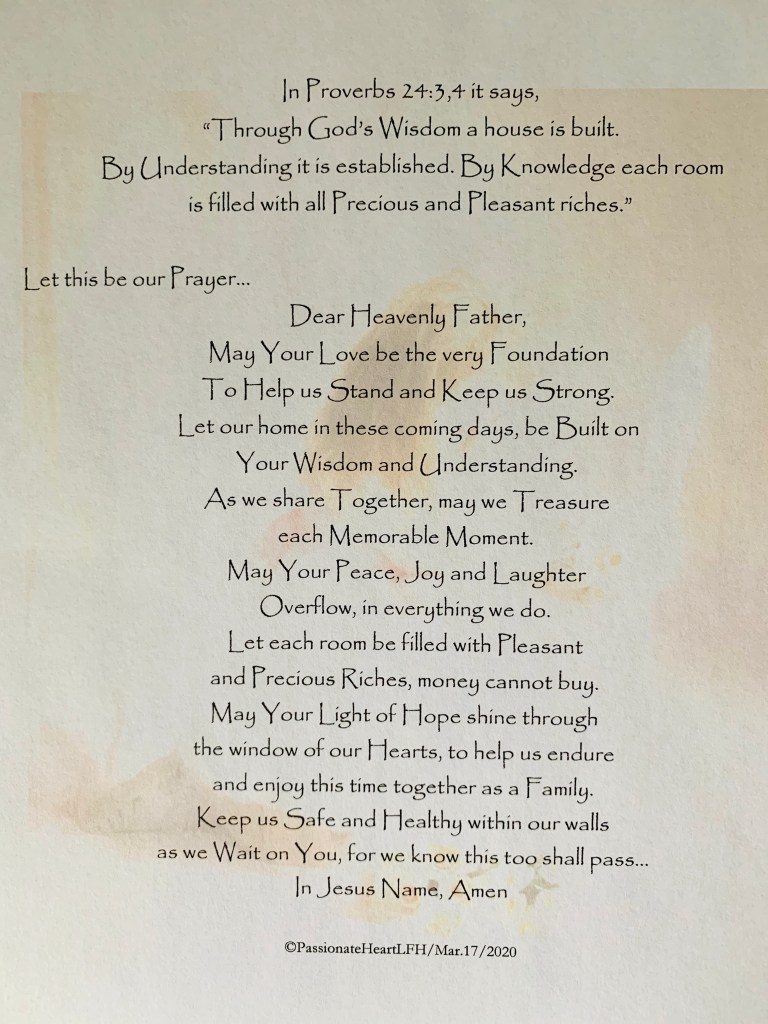 In Proverbs 24:3,4 it says,
“Through God's Wisdom a house is built.
By Understanding it is established. By Knowledge each room
is filled with all Precious and Pleasant riches.”
Let this be our Prayer...
Dear Heavenly Father,
May Your Love be the very Foundation
To Help us Stand and Keep us Strong.
Let our home in these coming days, be Built on
Your Wisdom and Understanding.
As we share Together, may we Treasure
each Memorable Moment.
May Your Peace, Joy and Laughter
Overflow, in everything we do.
Let each room be filled with Pleasant
and Precious Riches, money cannot buy.
May Your Light of Hope shine through
the window of our Hearts, to help us endure
and enjoy this time together as a Family.
Keep us Safe and Healthy within our walls
as we Wait on You, for we know this too shall pass...
In Jesus Name, Amen
©PassionateHeartLFH/Mar.17/2020